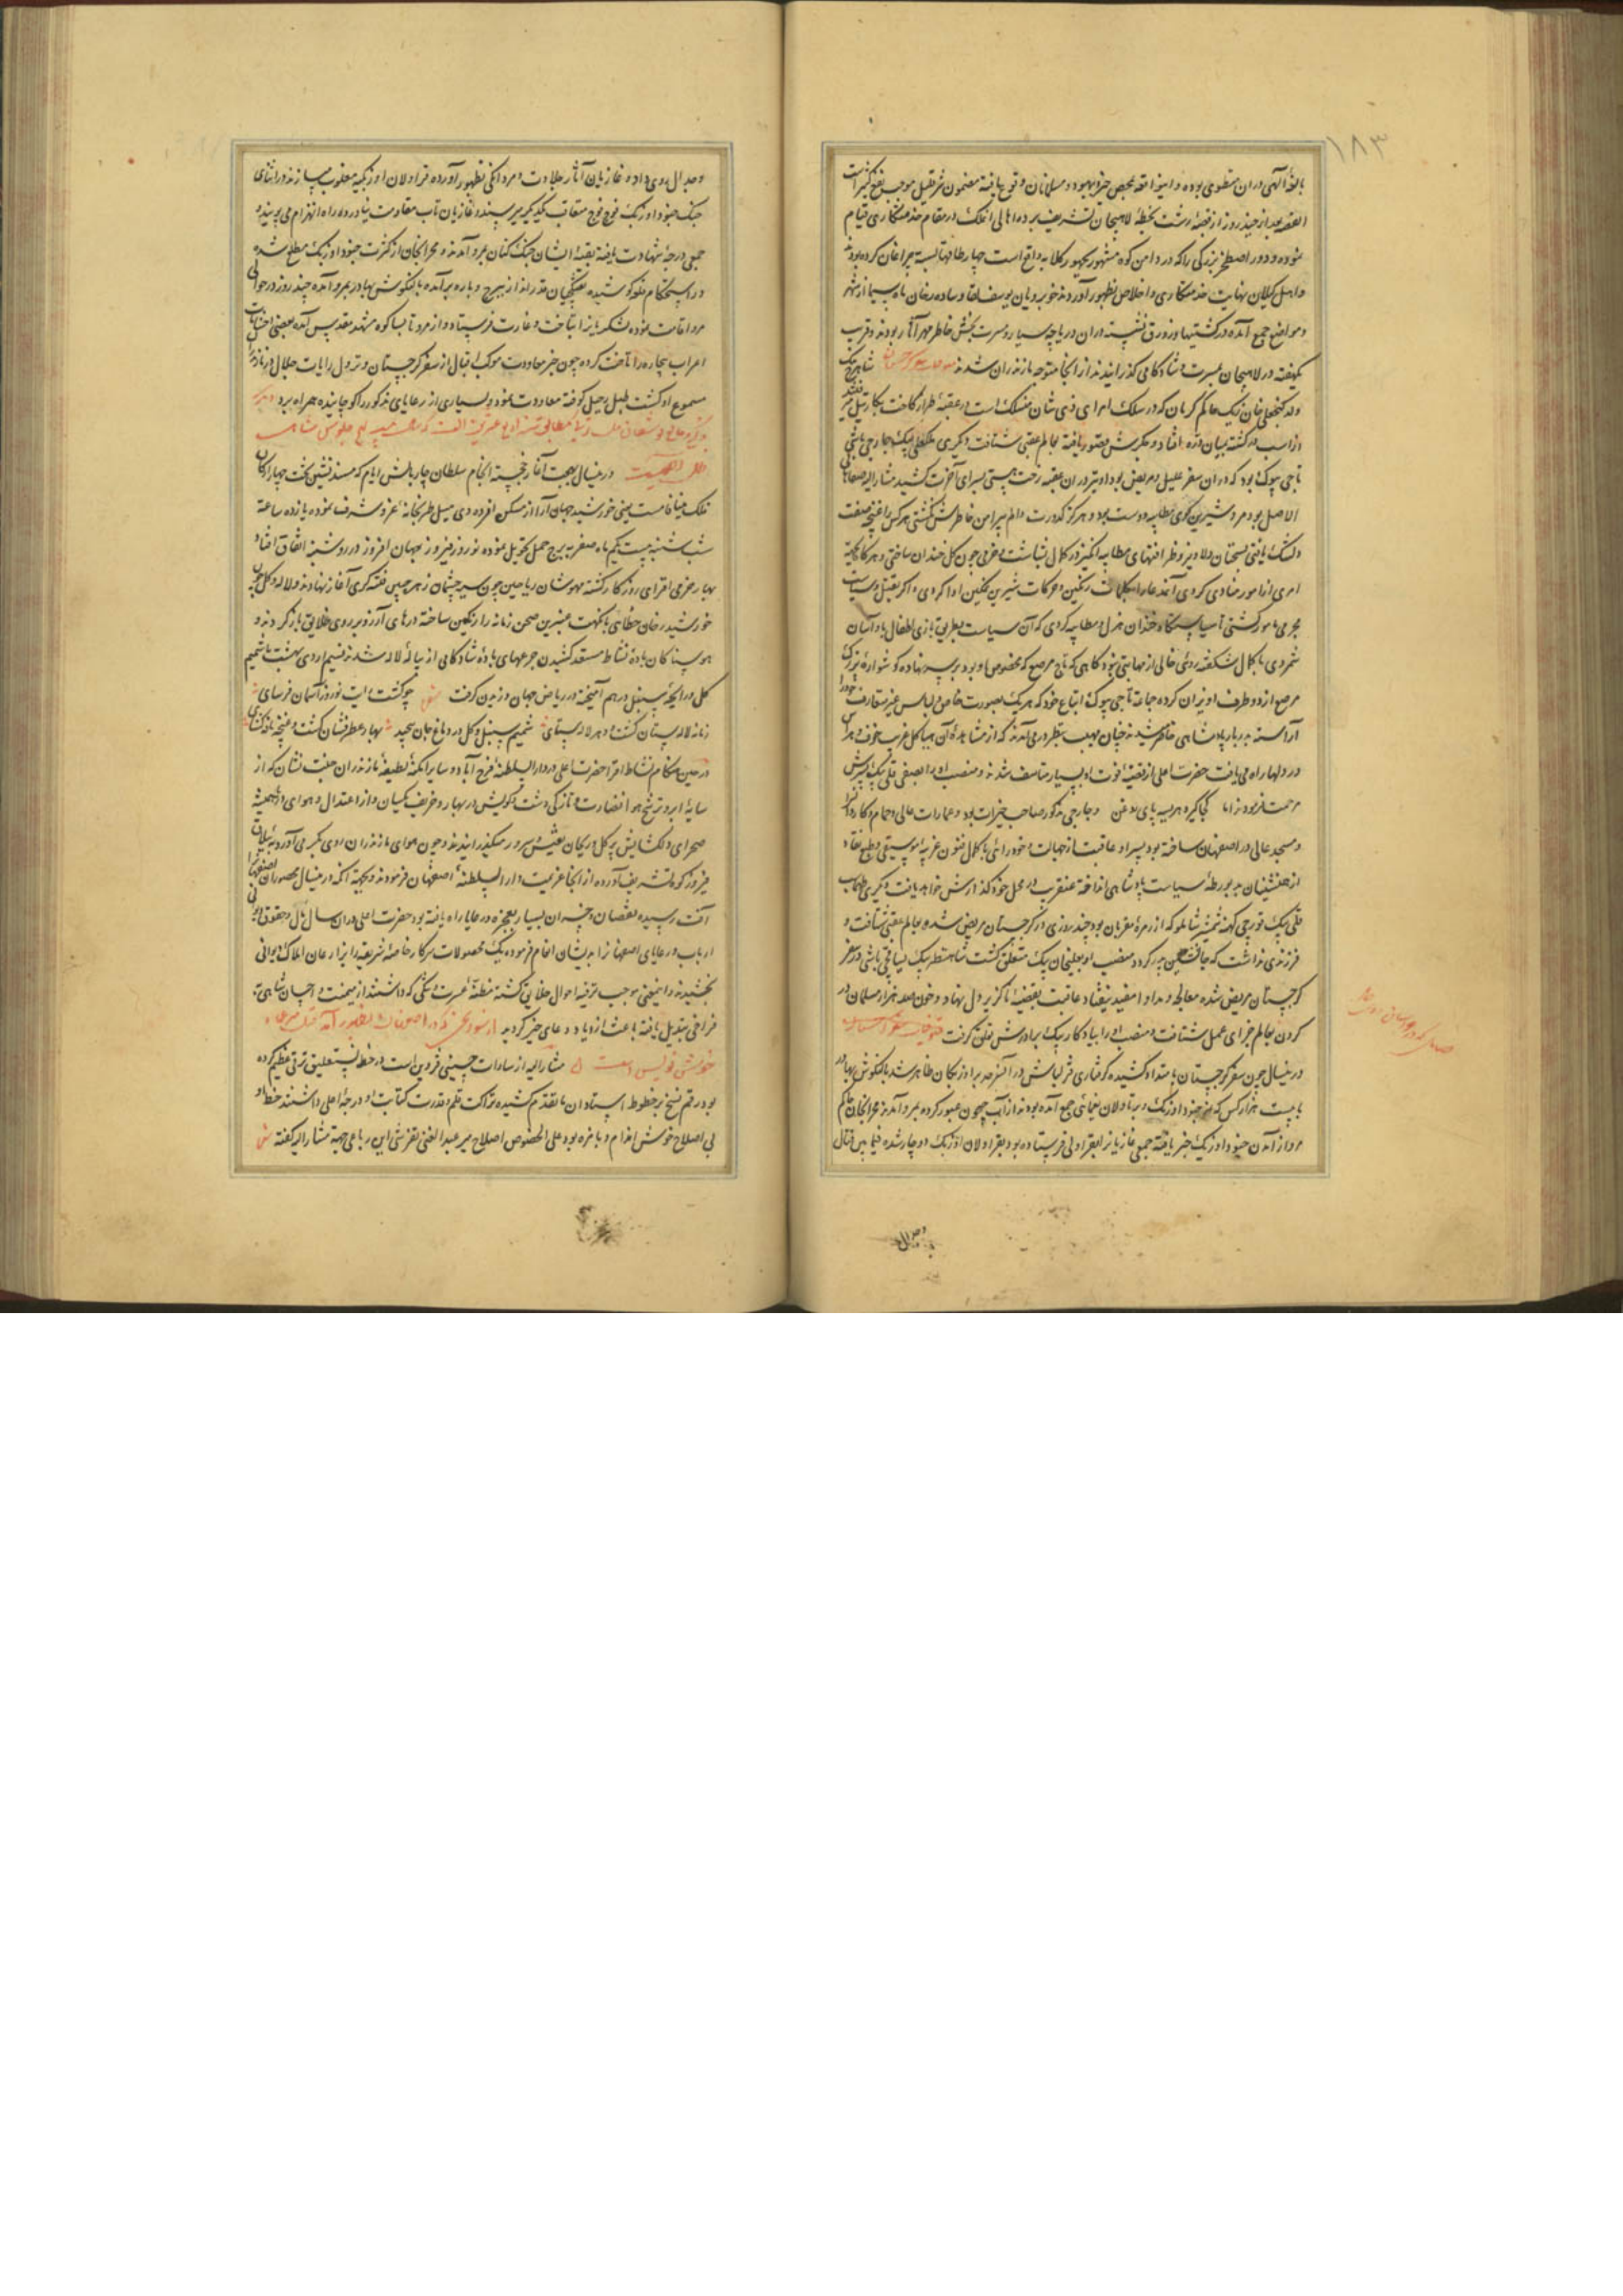 ۱۸۳
بالغهٔ الهی در آن منطوی بوده و این واقعه محض خیر و بهبود مسلمانان وقوع یافته مضمون شر قلیل موجب نفع کثیر است
القصه بعد از چند روز از قصبهٔ رشت بخطهٔ لاهیجان تشریف برده اهالی آنملک در مقام خدمتکاری قیام
نموده و دور اصطلخ بزرگی را که در دامن کوه مشهور واقع است چهار طاقها بسته چراغان کرده بودند
و اهل گیلان نهایت خدمتکاری و اخلاص بظهور آوردند خوبرویان یوسف لقا و ساده رخان ماه سیما از شهر
و مواضع جمع آمده در کشتیها و زورق نشسته در آن دریاچه سیار و مسرت بخش خاطر مهر آثار بودند و قریب
یکهفته در لاهیجان بمسرت و شادکامی گذرانیدند از آنجا متوجه مازندران شدند
ولد گنجعلیخان زیک حاکم کرمان که در سلک امرای ذی شان منسلک است در عقبهٔ
از اسب در گشته بمیان دره افتاد و پیکرش قصور یافته بعالم عقبی شتافت دیگری
تاجی بیوک بود که در آن سفر علیل و مریض بود او نیز در آن عقبه رخت هستی بسرای آخرت کشید مشارالیه صفاهانی
الاصل بود مرد شیرین گوی مطایبه دوست بود و هرگز کدورت و الم پیرامن خاطرش نگشتی هر کس را غنچه صفت
دلتنگ یافتی بسخنان دلاویز و ظرافتهای مطایبه انگیز در کمال بشاشت و خرمی چون گل خندان ساختی و هرگاه بجهة
امری از امور منادی کردی آنمدعا را بکلمات رنگین و حرکات شیرین نمکین ادا کردی و اگر بقتل و سیاست
مجرمی مامور گشتی تا سیاستگاه خندان هزل و مطایبه کردی که آن سیاست بطریق بازی اطفال باد آسان
شمردی با کمال شکفته روئی خالی از مهابتی نبود گاهی که تاج مرصع که مخصوص او بود بر سر نهاده گوشوارهٔ بزرگ
مرصع از دو طرف آویزان کرده جماعة تاجی بیوک اتباع خود که هر یک بصورت خاص و لباس غیر متعارف خود را
آراسته بدربار پادشاهی حاضر میشدند چنان مهیب بنظر در می آمدند که از مشاهدهٔ آن هیاکل غریب خوف و هراس
در دلها راه می یافت حضرت اعلی از قضیهٔ فوت او بسیار متاسف شدند و منصب او را بصفی قلی بیک پسرش
مرحمت فرمودند اما کجا گیرد هر سیه پای بود من و جارچی مذکور صاحب خیرات بود و عمارات عالی و حمام و کاروانسرا
و مسجد عالی در اصفهان ساخته بود پسر او عاقبت از جهالت و خودرائی با کمال فنون غریبه موسیقی و طبع نقاد
از همنشینان بد بورطهٔ سیاست پادشاهی انداخته عنقریب در محل خود گذارش خواهد یافت دیگری طهماسب
قلی بیک قورچی کهنه شمشیر شاملو که از زمرهٔ مقربان بود چند روزی در گرجستان مریض شده بعالم عقبی شتافت و
فرزندی نداشت که جانشین پدر گردد منصب او بعلیخان بیک متعلق گشت شاهنظر بیک یساقچی باشی در سفر
گرجستان مریض شده معالجه و مداوا مفید نیفتاد عاقبت بقضیهٔ ناگزیر دل نهاد و خون صد هزار مسلمان در
گردن بعالم جزای عمل شتافت و منصب او را بیادگار بیک برادرش تعلق گرفت
در این سال چون سفر گرجستان بامتداد کشیده گرفتاری قزلباش در آنسرحد بر اوزبکان ظاهر شد یالنکتوش بهادر
با بیست هزار کس گزیده جنود اوزبک و رتاولان یغمائی جمع آمده بودند از آب جیحون عبور کرده بمرو آمدند محرابخان حاکم
مرو از آمدن جنود اوزبک خبر یافته جمعی غازیان را بقراولی فرستاده بود بقراولان اوزبک دوچار شده فیما بین قتال
و جدال
و جدال روی داده غازیان آثار جلادت و مردانگی بظهور آورده قراولان اوزبکیه مغلوب میسازند در اثنای
جنگ جنود اوزبک فوج فوج متعاقب یکدیگر میرسیدند غازیان تاب مقاومت نیاورده راه انهزام می پویند و
جمعی درجهٔ شهادت یافته بقیهٔ ایشان جنگ کنان بمرو آمدند و محرابخان از کثرت جنود اوزبک مطلع شده
در استحکام قلعه کوشیده تفنگچیان قدرانداز ببرج و باره برآمده یالنکتوش بهادر بمرو آمده چند روز در حوالی
مرو اقامت نموده لشکریانرا بتاخت و غارت فرستاد و از مرو تا بساکوه مشهد مقدس آمده بعضی احشامات
اعراب بیچاره را تاخت کرده چون خبر معاودت موکب اقبال از سفر گرجستان و نزول رایات جلال در مازندران
مسموع او گشت طبل رحیل کوفته معاودت نمود و بسیاری از رعایای مذکور را کوچانیده همراه برد
در این سال بهجت آثار خجسته انجام سلطان چار بالش ایام که مسند نشین تخت چهار ارکان
فلک مینا فامست یعنی خورشید جهان آرا از مسکن افسرده دی میل طربخانهٔ عز و شرف نموده یازده ساعة
شب شنبه بیست یکم ماه صفر به برج حمل تحویل نموده نوروز فیروز جهان افروز در روز شنبه اتفاق افتاد
بهار خرمی افزای روزگار گشته مهوشان ریاحین چون سیه چشمان زهره جبین فتنه گری آغاز نهادند و لاله و گل چون
خورشید رخان خطائی با نکهت عنبرین صحن زمانه را رنگین ساخته درهای آرزو بر روی خلایق باز گردند و
هوسناکان بادهٔ نشاط مستعد کشیدن جرعهای بادهٔ شادکامی از پیالهٔ لاله شدند نسیم اردی بهشت با شمیم
گل و رایحهٔ سنبل درهم آمیخته در ریاض جهان وزیدن گرفت شعر چو گشت رایت نوروز آسمان فرسای
زمانه لاله ستان گشت و دهر لاله ستای شمیم سنبل و گل در دماغ جان پیچید بهار عطر فشان گشت و غنچه نافه گشای
در حین هنگام نشاط افزا حضرت اعلی در دارالسلطنهٔ فرح آباد و سایر امکنهٔ لطیفهٔ مازندران جنت نشان که از
سایهٔ ابر و ترشح هوا نضارت و تازگی دشت و کویش در بهار و خریف یکسان و از اعتدال و هوای دایم همیشه
صحرای دلگشایش پر گل و ریحان بعیش و سرور میگذرانیدند و چون هوای مازندران روی بگرمی آورد به ییلاق
فیروزکوه تشریف آورده از آنجا عزیمت دارالسلطنهٔ اصفهان فرمودند و بجهة آنکه در این سال محصولات اصفهان را
آفت رسیده نقصان و خسران بسیار بعجزه و رعایا راه یافته بود حضرت اعلی در آن سال مال و حقوق دیوانی
ارباب و رعایای اصفهانرا بدیشان انعام فرموده یک محصولات سرکار خاصهٔ شریفه را بزارعان املاک دیوانی
بخشیدند و این معنی موجب ترفیه احوال خلایق گشته مظنهٔ عسرت و تنگی که داشتند از میمنت و احسان شاهی به
فراخی تبدیل یافته باعث ازدیاد دعای خیر گردید از سوانح که در اصفهان بظهور آمد قتل میر عماد
خوشنویس است مشارالیه از سادات حسینی قزوین است در خط نستعلیق ترقی عظیم کرده
بود رقم نسخ بر خطوط استادان ما تقدم کشیده نزاکت قلم و قدرت کتابت او درجهٔ اعلی داشتند خط او
بی اصلاح خوش اندام و بامزه بود علی الخصوص اصلاح میر عبدالغنی تفرشی این رباعی جهة مشارالیه گفته